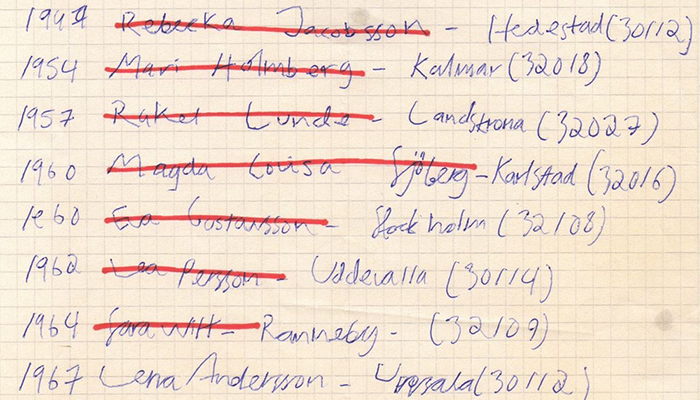 1949 Rebecka Jacobsson - Hedestad (30112)
1954 Mari Holmberg - Kalmar (32018)
1957 Rakel Lunde - Landskrona (32027)
1960 Magda Lovisa Sjöberg - Karlstad (32016)
1960 Eva Gustavsson - Stockholm (32108)
1962 Lea Persson - Uddevalla (30114)
1964 Sara Witt - Ronneby - (32109)
1967 Lena Andersson - Uppsala (30112)